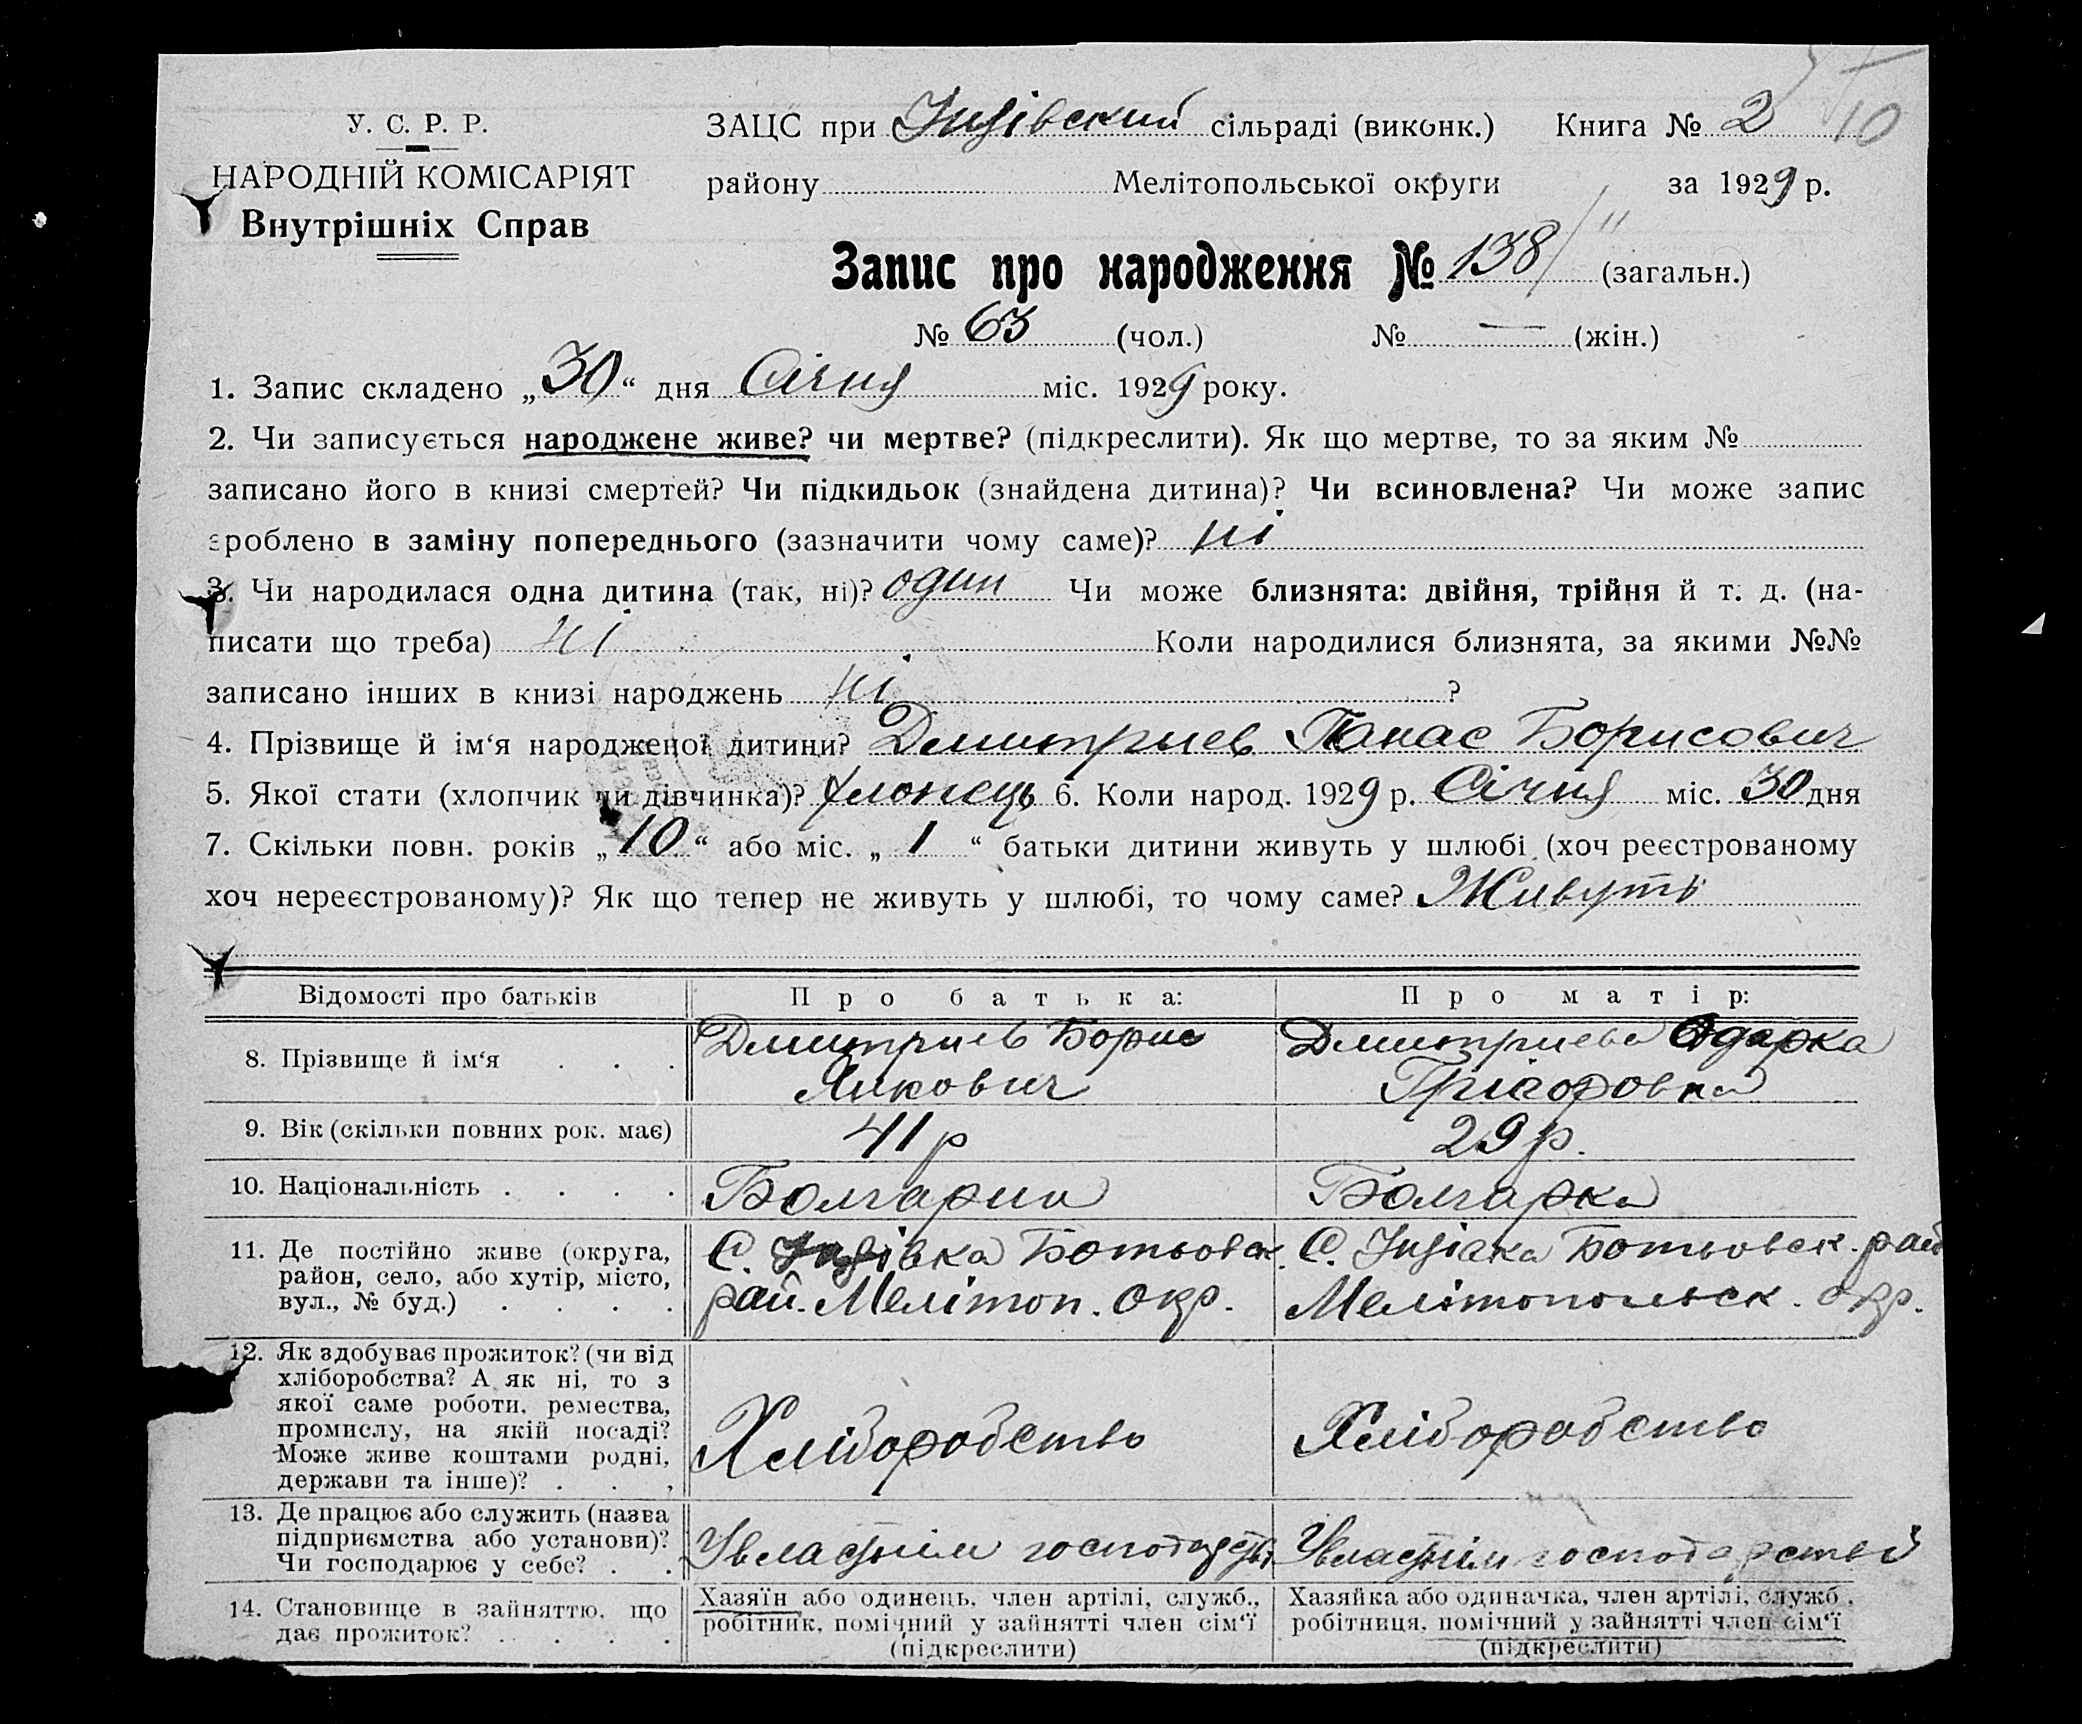 У. С. Р. Р.
НАРОДНІЙ КОМІСАРІЯТ
Внутрішніх Справ
ЗАЦС при Інзівский сільраді (виконк.) Книга № 2 10
району Мелітопольської округи за 1929 р.
Запис про народження № 138 (загальн.)
№ 63 (чол.) № — (жін.)
1. Запис складено „30“ дня Січня міс. 1929 року.
2. Чи записується народжене живе? чи мертве? (підкреслити). Як що мертве, то за яким №
записано його в книзі смертей? Чи підкидьок (знайдена дитина)? Чи всиновлена? Чи може запис
зроблено в заміну попереднього (зазначити чому саме)? ні
3. Чи народилася одна дитина (так, ні)? один Чи може близнята: двійня, трійня й т. д. (на-
писати що треба) ні Коли народилися близнята, за якими №№
записано інших в книзі народжень ні ?
4. Прізвище й ім‘я народженої дитини? Дмитриев Панас Борисович
5. Якої стати (хлопчик чи дівчинка)? хлопець 6. Коли народ. 1929 р. Січня міс. 30 дня
7. Скільки повн. років „10“ або міс. „1“ батьки дитини живуть у шлюбі (хоч реєстрованому
хоч нереєстрованому)? Як що тепер не живуть у шлюбі, то чому саме? Живуть
Відомості про батьків Про батька: Про матір:
8. Прізвище й ім‘я . . . Дмитриев Борис Дмитриева Одарка
Янкович Грігоровна
9. Вік (скільки повних рок. має) 41 р 29 р.
10. Національність . . . . Болгарин Болгарка
11. Де постійно живе (округа,
район, село, або хутір, місто,
вул., № буд.) . . . .
С. Інзівка Ботьовск.
рай. Мелітоп. окр.
С. Інзівка Ботьовск. рай
Мелітопольск. окр.
12. Як здобуває прожиток? (чи від
хліборобства? А як ні, то з
якої саме роботи, ремества,
промислу, на якій посаді?
Може живе коштами родні,
держави та інше)? . . ,
Хліборобство Хліборобство
13. Де працює або служить (назва
підприємства або установи)?
Чи господарює у себе? . .
У власнім У власнім господарстві
14. Становище в зайняттю, що
дає прожиток? . . . .
Хазяїн або одинець, член артілі, служб.,
робітник, помічний у зайнятті член сім‘ї
(підкреслити)
Хазяйка або одиначка, член артілі, служб.,
робітниця, помічний у зайнятті член сім‘ї
(підкреслити)